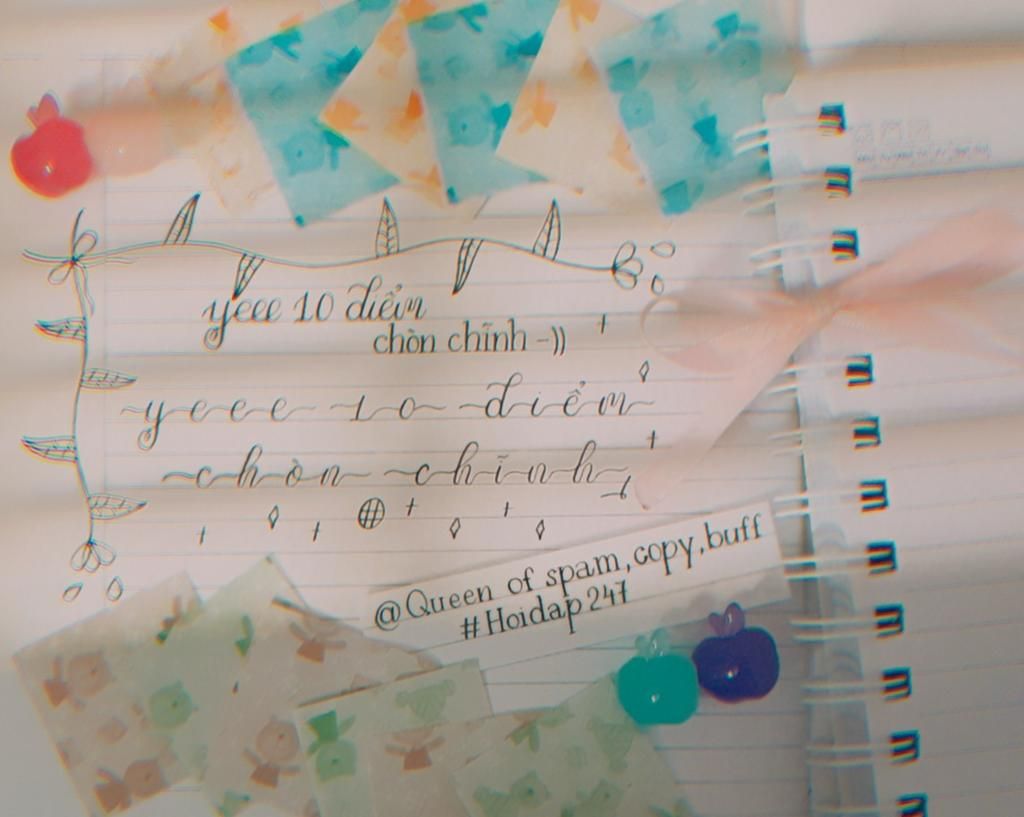 yeee 10 điểm
chòn chĩnh -))
yeee 10 điểm
chòn chĩnh
@Queen of spam,copy,buff
#Hoidap247